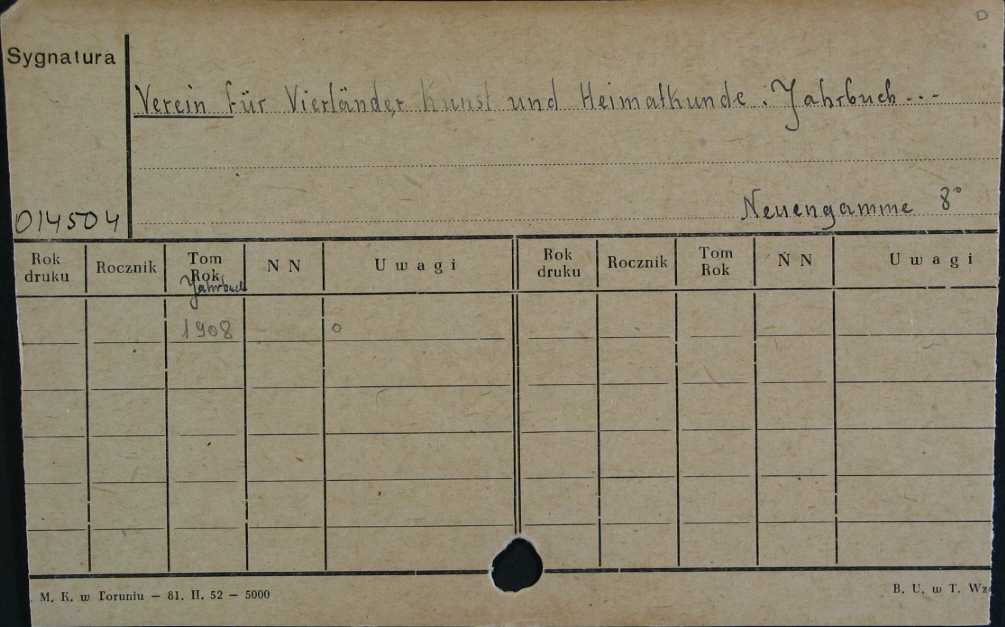 D
Sygnatura
Verein für Vierländer Kunst und Heimatkunde. Jahrbuch...
014504
Neuengamme 8°
Rok druku Rocznik Tom Rok N N Uwagi Rok druku Rocznik Tom Rok N N Uwagi
Jahrbuch
1908 o
M. K. w Toruniu — 81. II. 52 — 5000
B. U. w T.